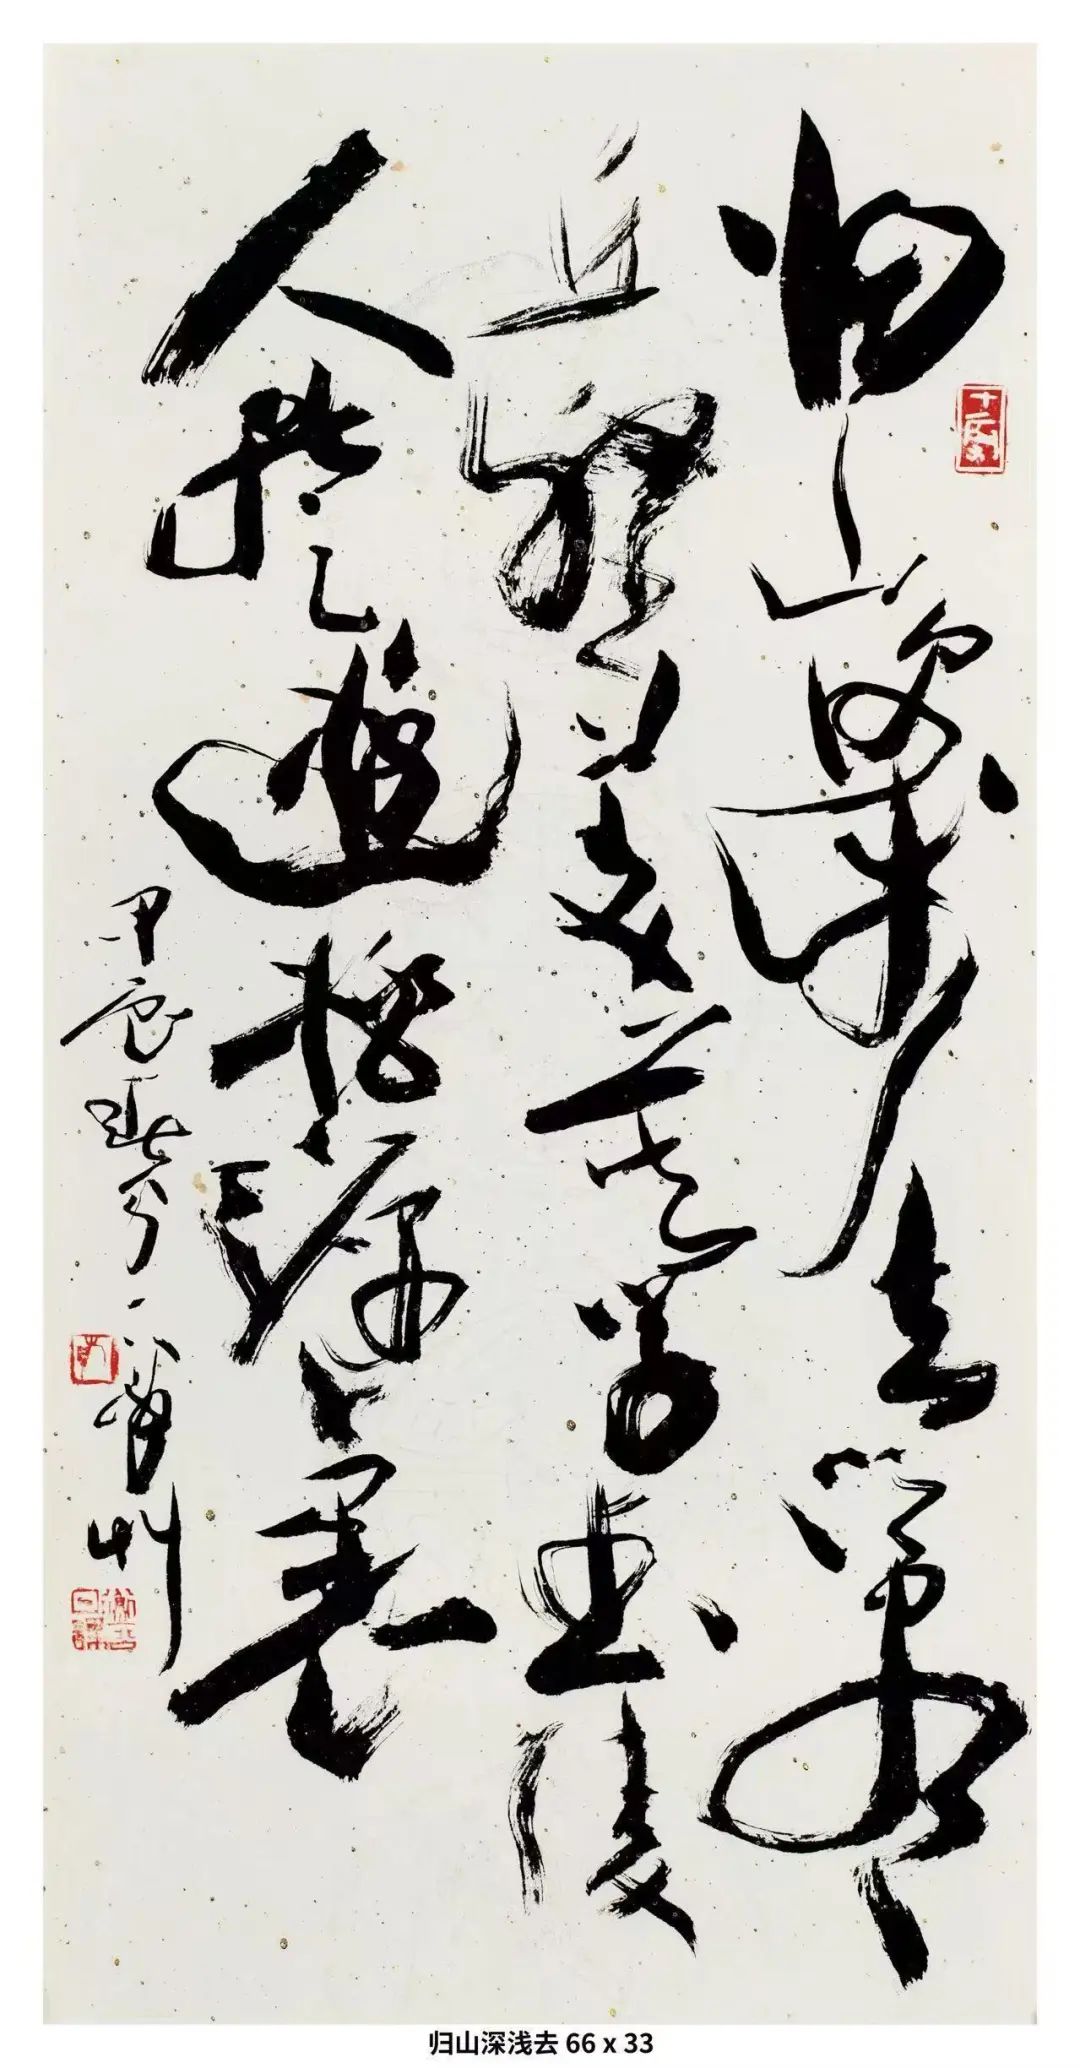 归山深浅去须尽
丘壑美莫学武陵
人暂遊桃源裏
甲辰春分
归山深浅去 66 x 33